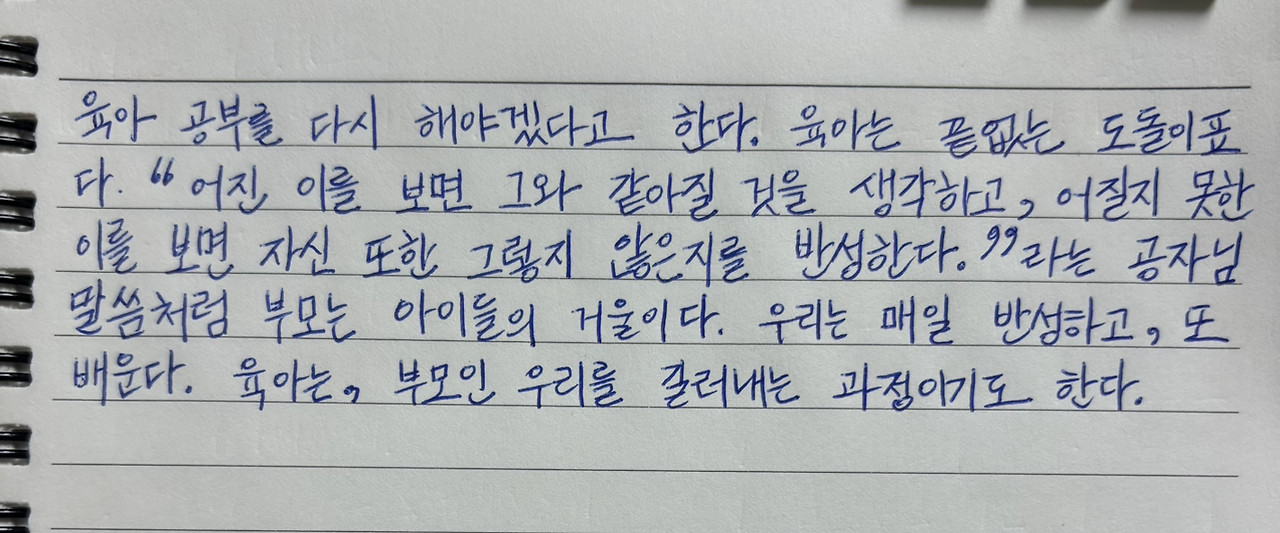 육아 공부를 다시 해야겠다고 한다. 육아는 끝없는 도돌이표
다. “어진 이를 보면 그와 같아질 것을 생각하고, 어질지 못한
이를 보면 자신 또한 그렇지 않은지를 반성한다.”라는 공자님
말씀처럼 부모는 아이들의 거울이다. 우리는 매일 반성하고, 또
배운다. 육아는, 부모인 우리를 길러내는 과정이기도 한다.